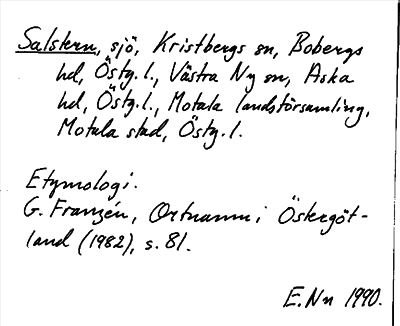 Salstern, sjö, Kristbergs sn, Bobergs
hd, Östg. l., Västra Ny sn, Aska
hd, Östg. l., Motala landsförsamling,
Motala stad, Östg. l.
Etymologi.
G. Franzén, Ortnamn i Östergöt-
land (1982), s. 81.
E. Nn 1990.